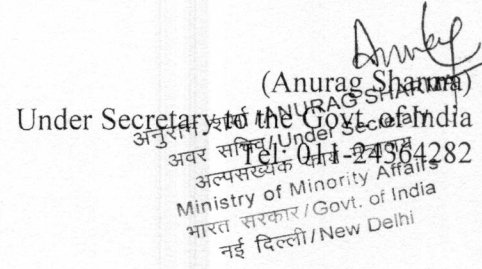 (Anurag Sharma)
Under Secretary to the Govt. of India
Tel: 011-24364282
अनुराग शर्मा/ANURAG SHARMA
अवर सचिव/Under Secretary
अल्पसंख्यक कार्य मंत्रालय
Ministry of Minority Affairs
भारत सरकार/Govt. of India
नई दिल्ली/New Delhi